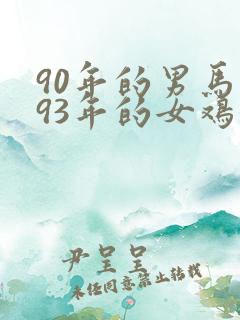 90年的男馬
93年的女鸡
尹呈呈
未经同意禁止转载